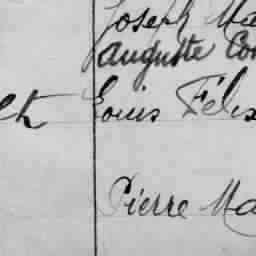 Joseph Ma
Auguste Con
lt Louis Félix
Pierre Ma